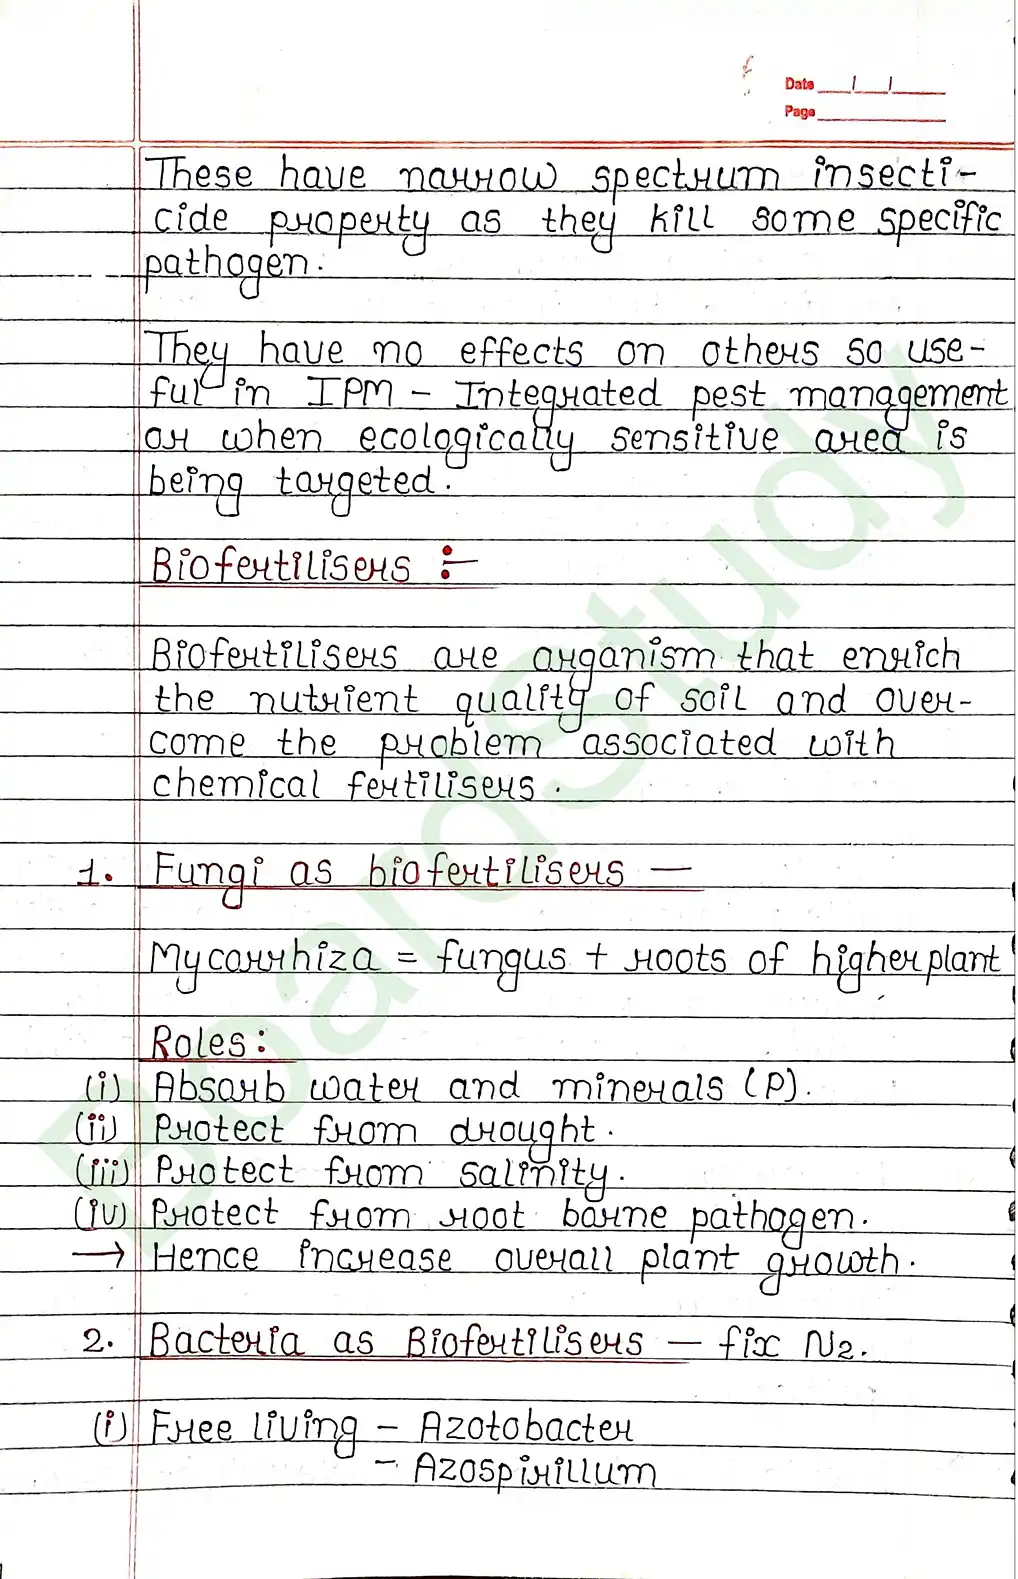 Date
Page
These have narrow spectrum insecti-
cide property as they kill some specific
pathogen.
They have no effects on others so use-
ful in IPM - Integrated pest management
or when ecologically sensitive area is
being targeted.
Biofertilisers :-
Biofertilisers are organism that enrich
the nutrient quality of soil and over-
come the problem associated with
chemical fertilisers.
1. Fungi as biofertilisers —
Mycorrhiza = fungus + roots of higher plant
Roles:
(i) Absorb water and minerals (P).
(ii) Protect from drought.
(iii) Protect from salinity.
(iv) Protect from root borne pathogen.
→ Hence increase overall plant growth.
2. Bacteria as Biofertilisers — fix N2.
(i) Free living - Azotobacter
- Azospirillum
BoardStudy